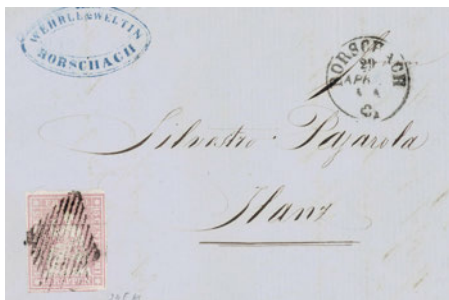 WEHRLI & WELTIN
RORSCHACH
RORSCHACH
29
APR
Silvestro Pajarola
Ilanz